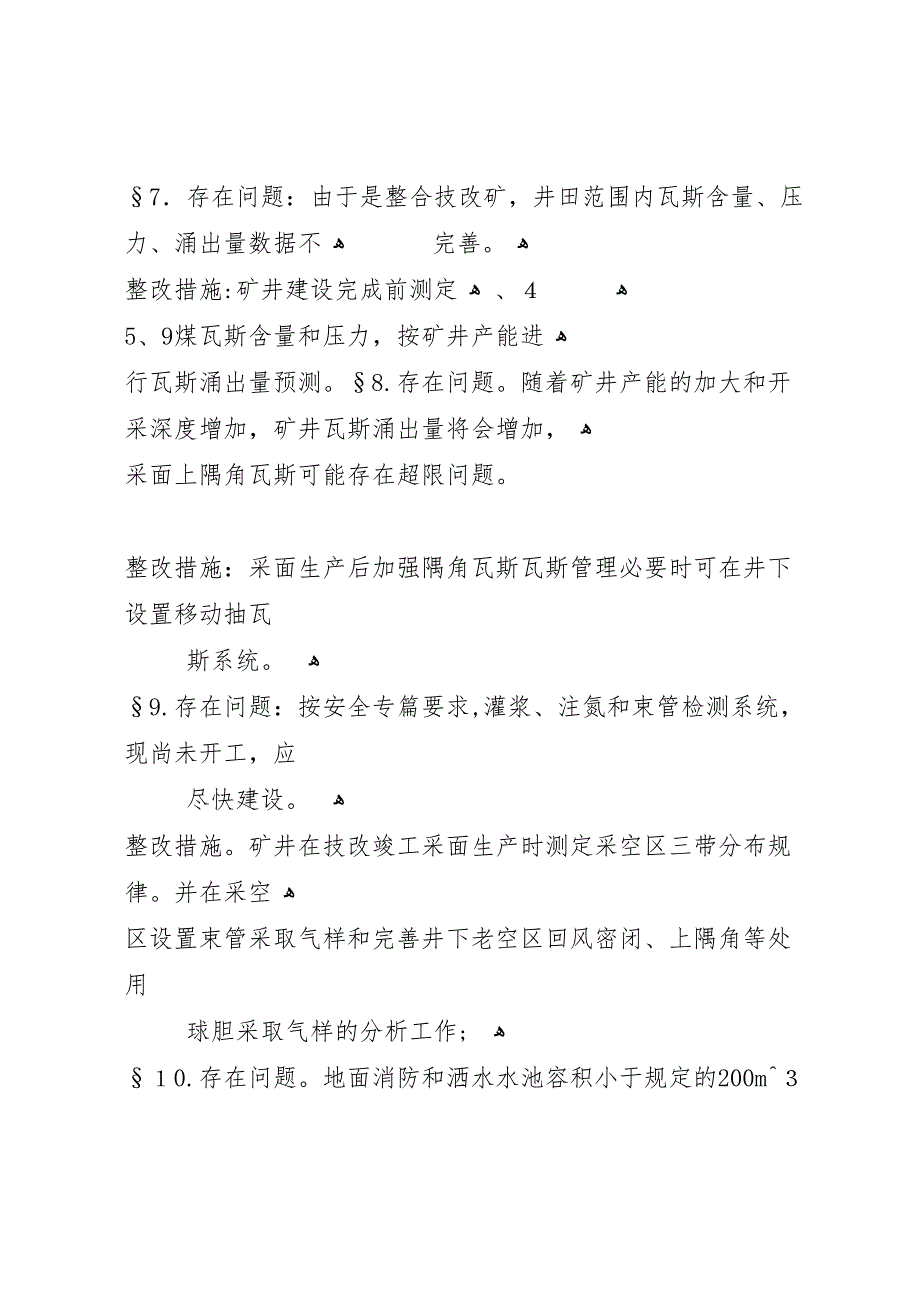 §7. 存在问题：由于是整合技改矿，井田范围内瓦斯含量、压
力、涌出量数据不 ﻫ 完善。 ﻫ
整改措施:矿井建设完成前测定 ﻫ 、4 ﻫ
5、9煤瓦斯含量和压力，按矿井产能进 ﻫ
行瓦斯涌出量预测。§8.存在问题。随着矿井产能的加大和开
采深度增加，矿井瓦斯涌出量将会增加， ﻫ
采面上隅角瓦斯可能存在超限问题。
整改措施：采面生产后加强隅角瓦斯瓦斯管理必要时可在井下
设置移动抽瓦
斯系统。 ﻫ
§9.存在问题：按安全专篇要求,灌浆、注氮和束管检测系统，
现尚未开工，应
尽快建设。 ﻫ
整改措施。矿井在技改竣工采面生产时测定采空区三带分布规
律。并在采空 ﻫ
区设置束管采取气样和完善井下老空区回风密闭、上隅角等处
用
球胆采取气样的分析工作; ﻫ
§10.存在问题。地面消防和洒水水池容积小于规定的200m^3